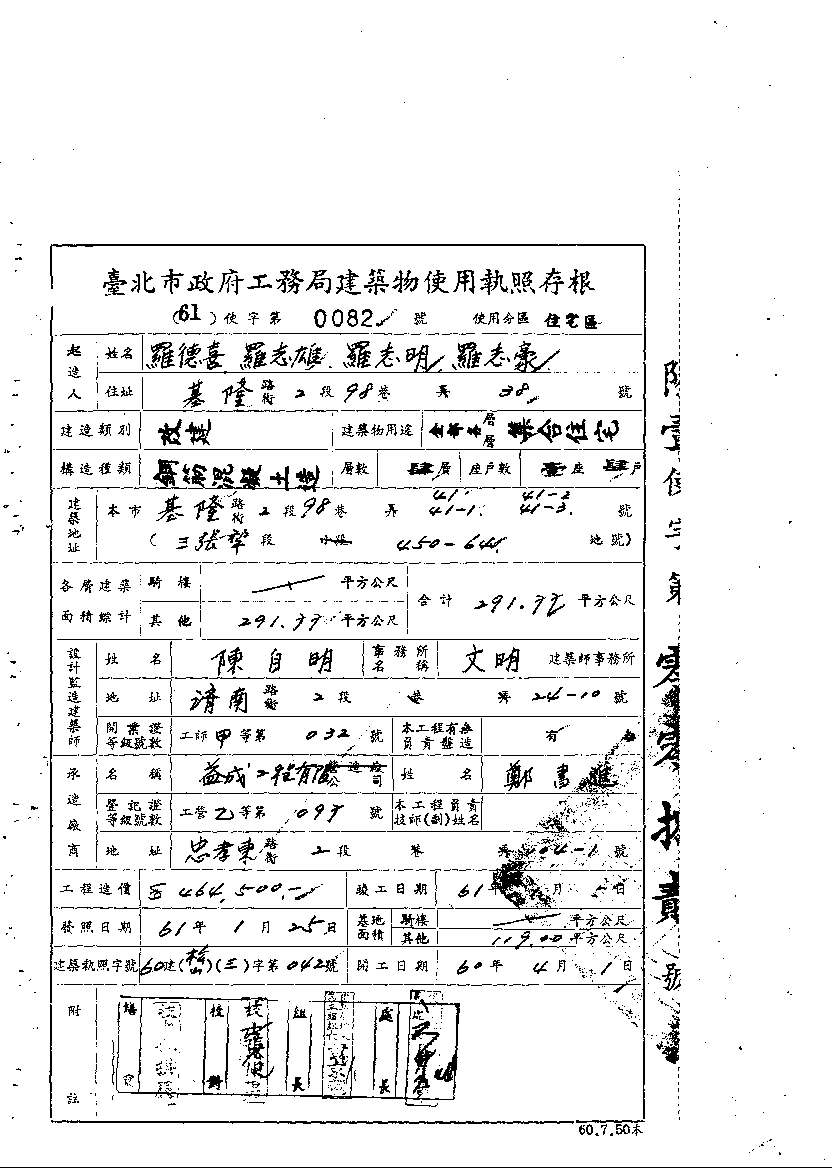 臺北市政府工務局建築物使用執照存根
(61)使字第 0082 號 使用分區 住宅區
起造人 姓名 羅德喜 羅志雄 羅志明 羅志豪
住址 基隆 路街 2 段 98 巷 弄 38 號
建造類別 改建 建築物用途 全部各層層 集合住宅
構造種類 鋼筋混凝土造 層數 肆層 座戶數 壹座 肆戶
建築地址 本市 基隆 路街 2 段 98 巷 弄 41. 41-1. 41-2 41-3. 號
(三張犂 段 小段 450-64 地號)
各層建築面積綜計 騎樓 平方公尺 合計 平方公尺
其他 平方公尺
設計監造建築師 姓名 陳自明 事務所名稱 文明 建築師事務所
地址 濟南 路街 2 段 巷 弄 24-10 號
開業證等級號數 工師甲等第 032 號 本工程有無負責監造 有
承造廠商 名稱 益成工程有限公司 姓名 鄭書進
登記證等級號數 工營乙等第 號 本工程負責技師(副)姓名
地址 忠孝東 路街 2 段 巷 弄 104-1 號
工程造價 464,500.- 竣工日期 61年 月 5日
發照日期 61年 1月 25日 基地面積 騎樓 平方公尺
其他 119.00 平方公尺
建築執照字號 60建(松山)(三)字第042號 開工日期 60年 4月 1日
附註 校對 組長 處長
60.7.50本